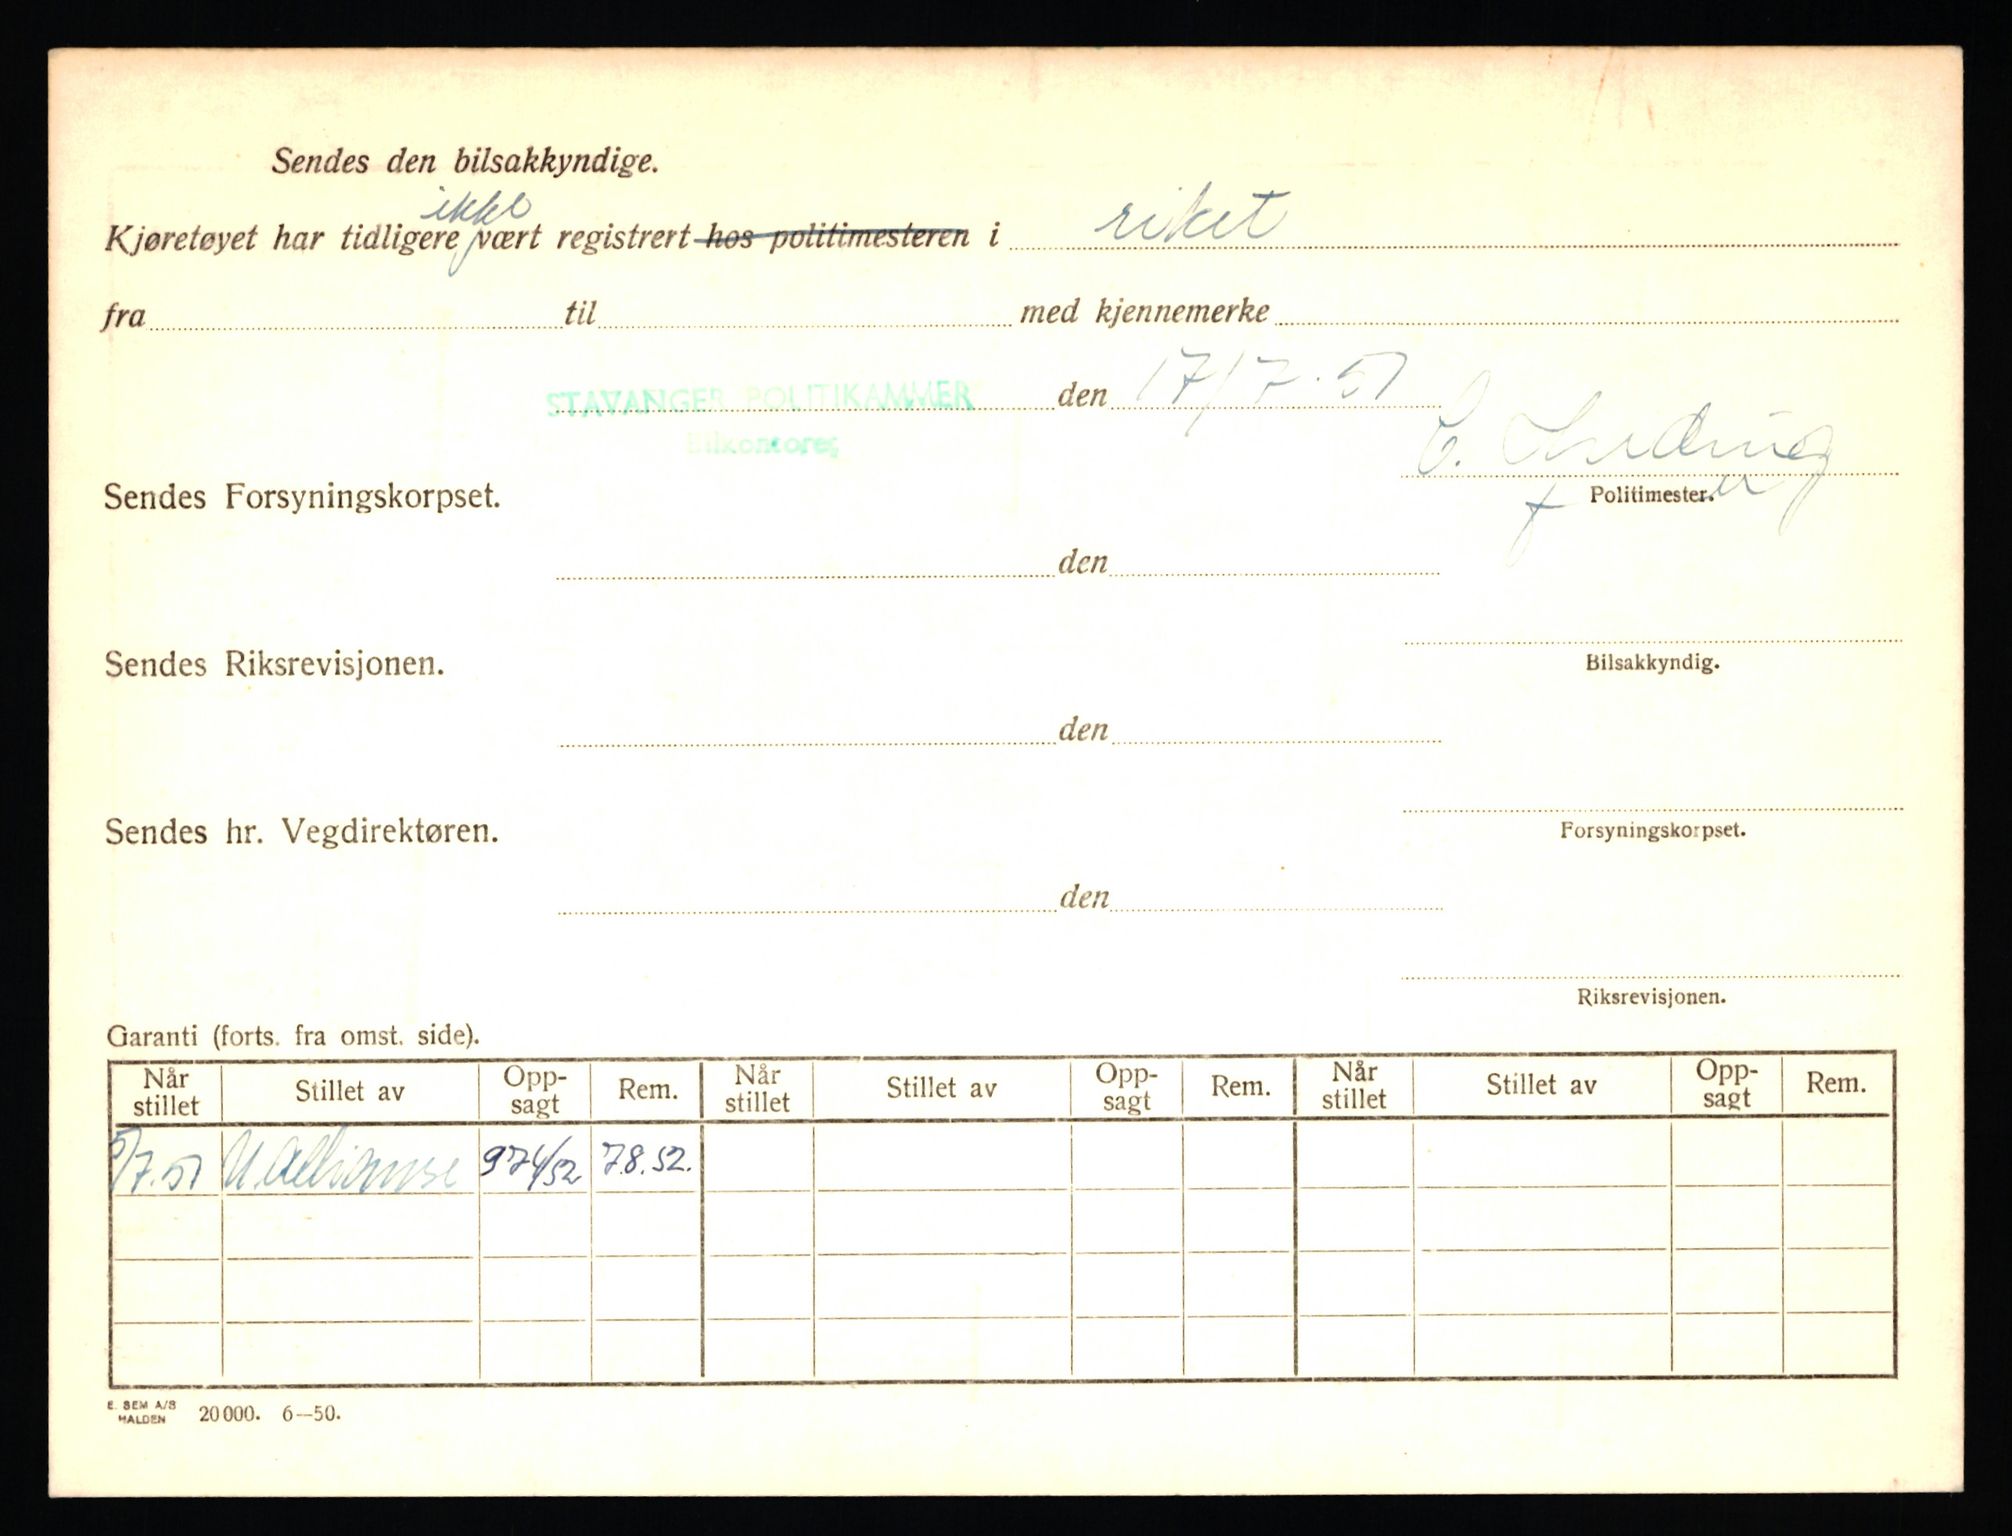 Sendes den bilsakkyndige.
Kjøretøyet har tidligere ikke vært registrert hos politimesteren i riket
fra til med kjennemerke
STAVANGER POLITIKAMMER den 17/7.51
Bilkontoret
Sendes Forsyningskorpset.
Politimester.
den
Sendes Riksrevisjonen.
Bilsakkyndig.
den
Sendes hr. Vegdirektøren.
Forsyningskorpset.
den
Riksrevisjonen.
Garanti (forts. fra omst. side).
Når stillet Stillet av Opp-sagt Rem. Når stillet Stillet av Opp-sagt Rem. Når stillet Stillet av Opp-sagt Rem.
/7.51 974/52 7.8.52.
E. SEM A/S
HALDEN 20000. 6—50.